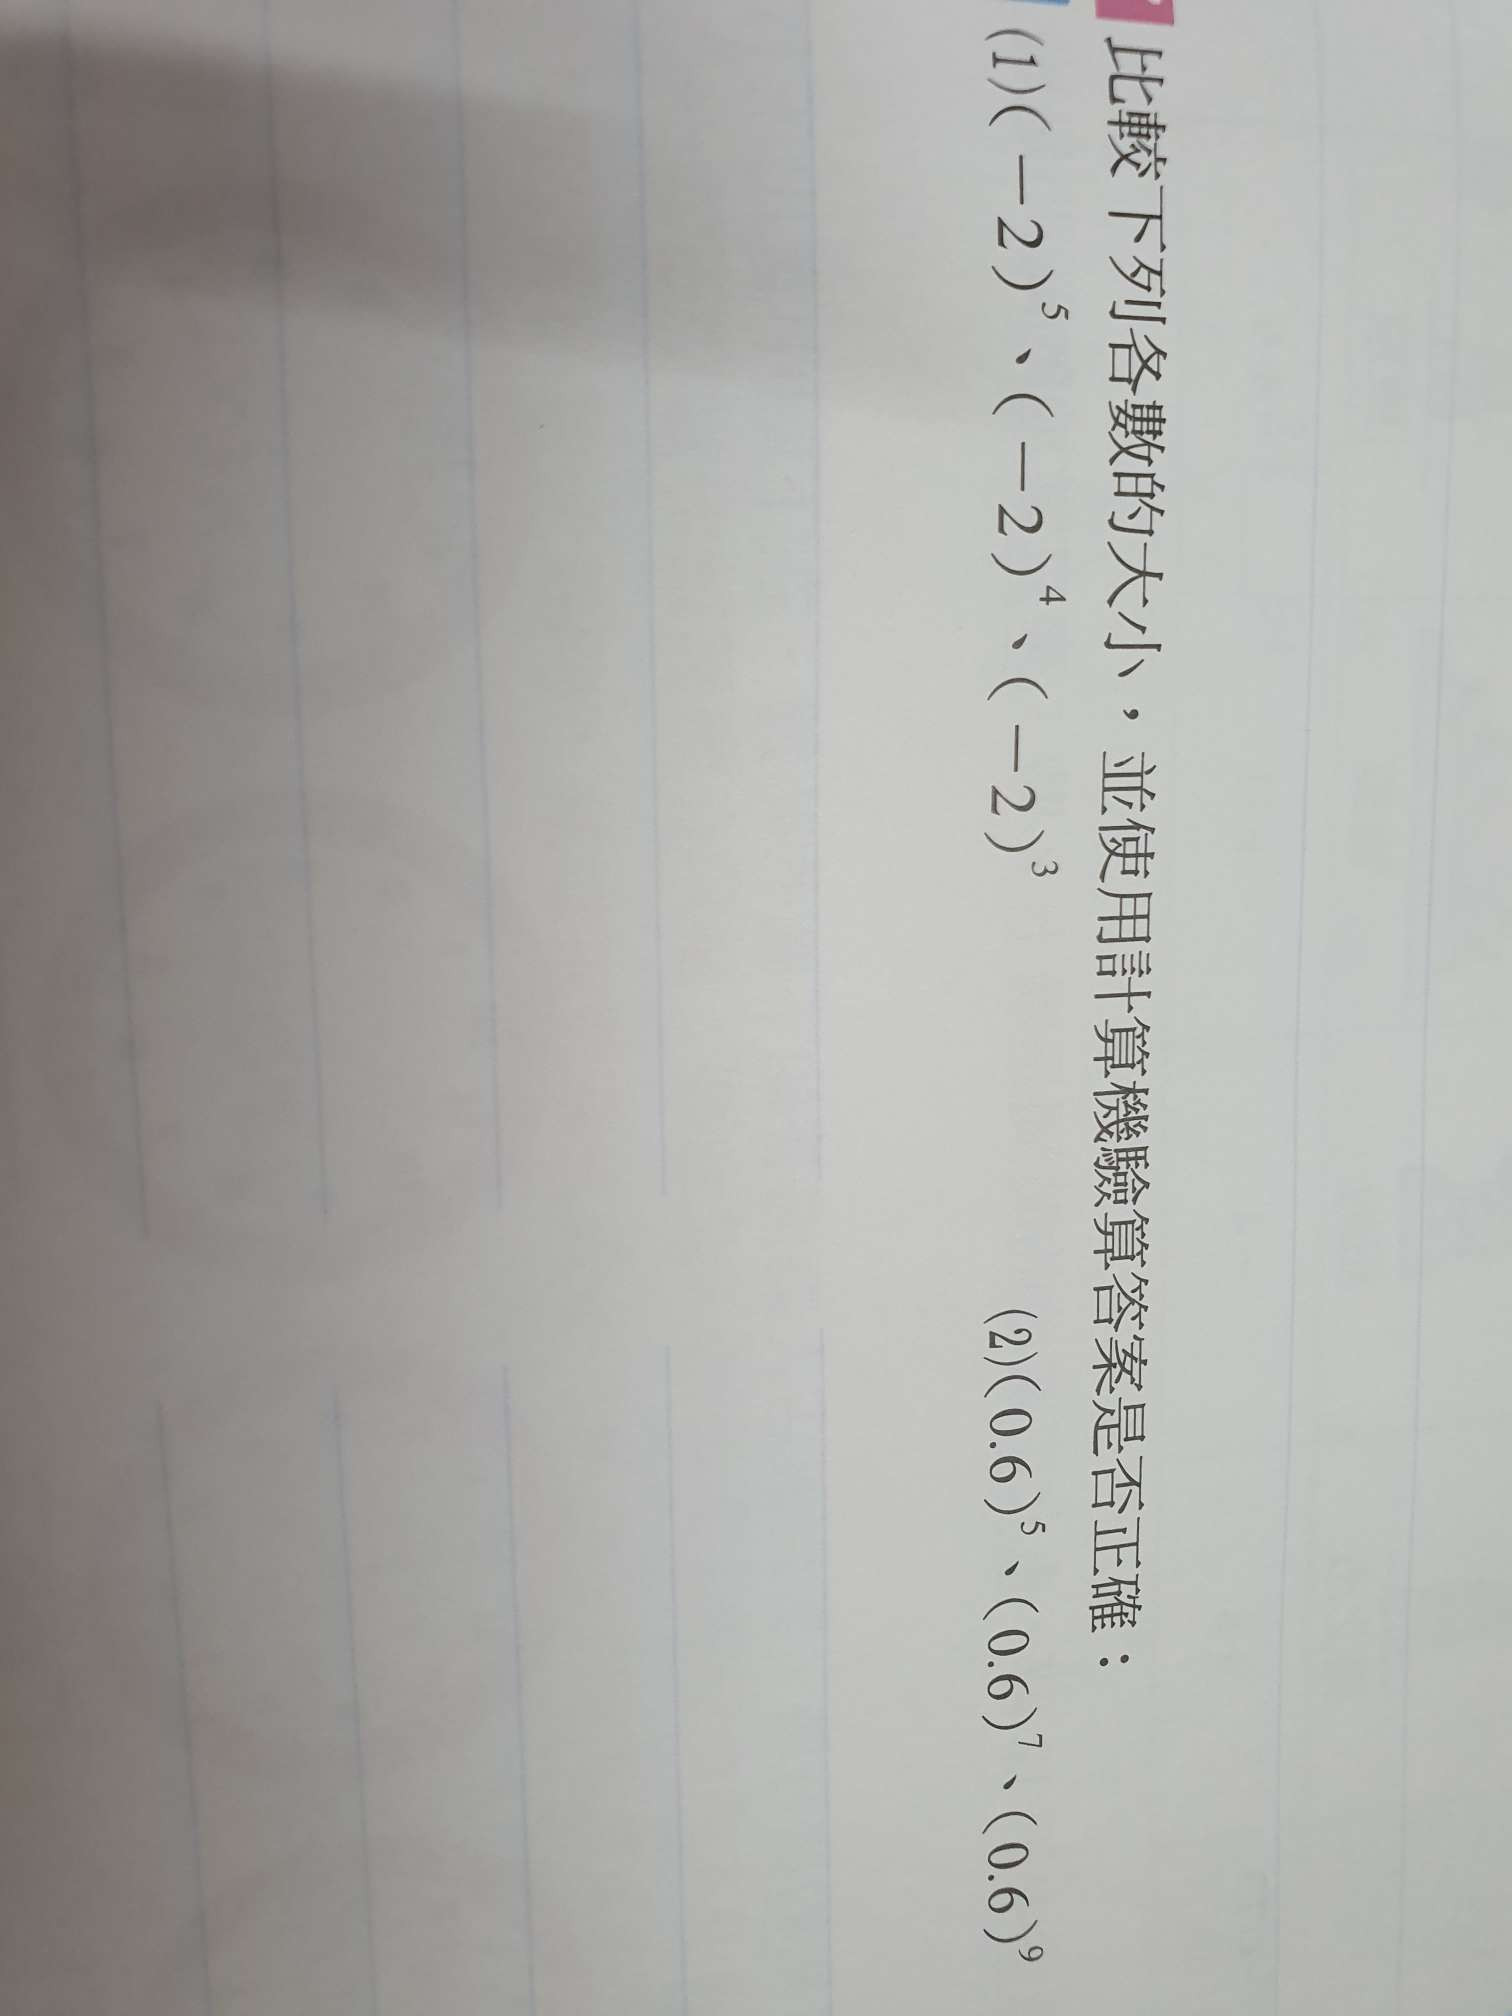 比較下列各數的大小，並使用計算機驗算答案是否正確：
(1)(－2)⁵、(－2)⁴、(－2)³ (2)(0.6)⁵、(0.6)⁷、(0.6)⁹